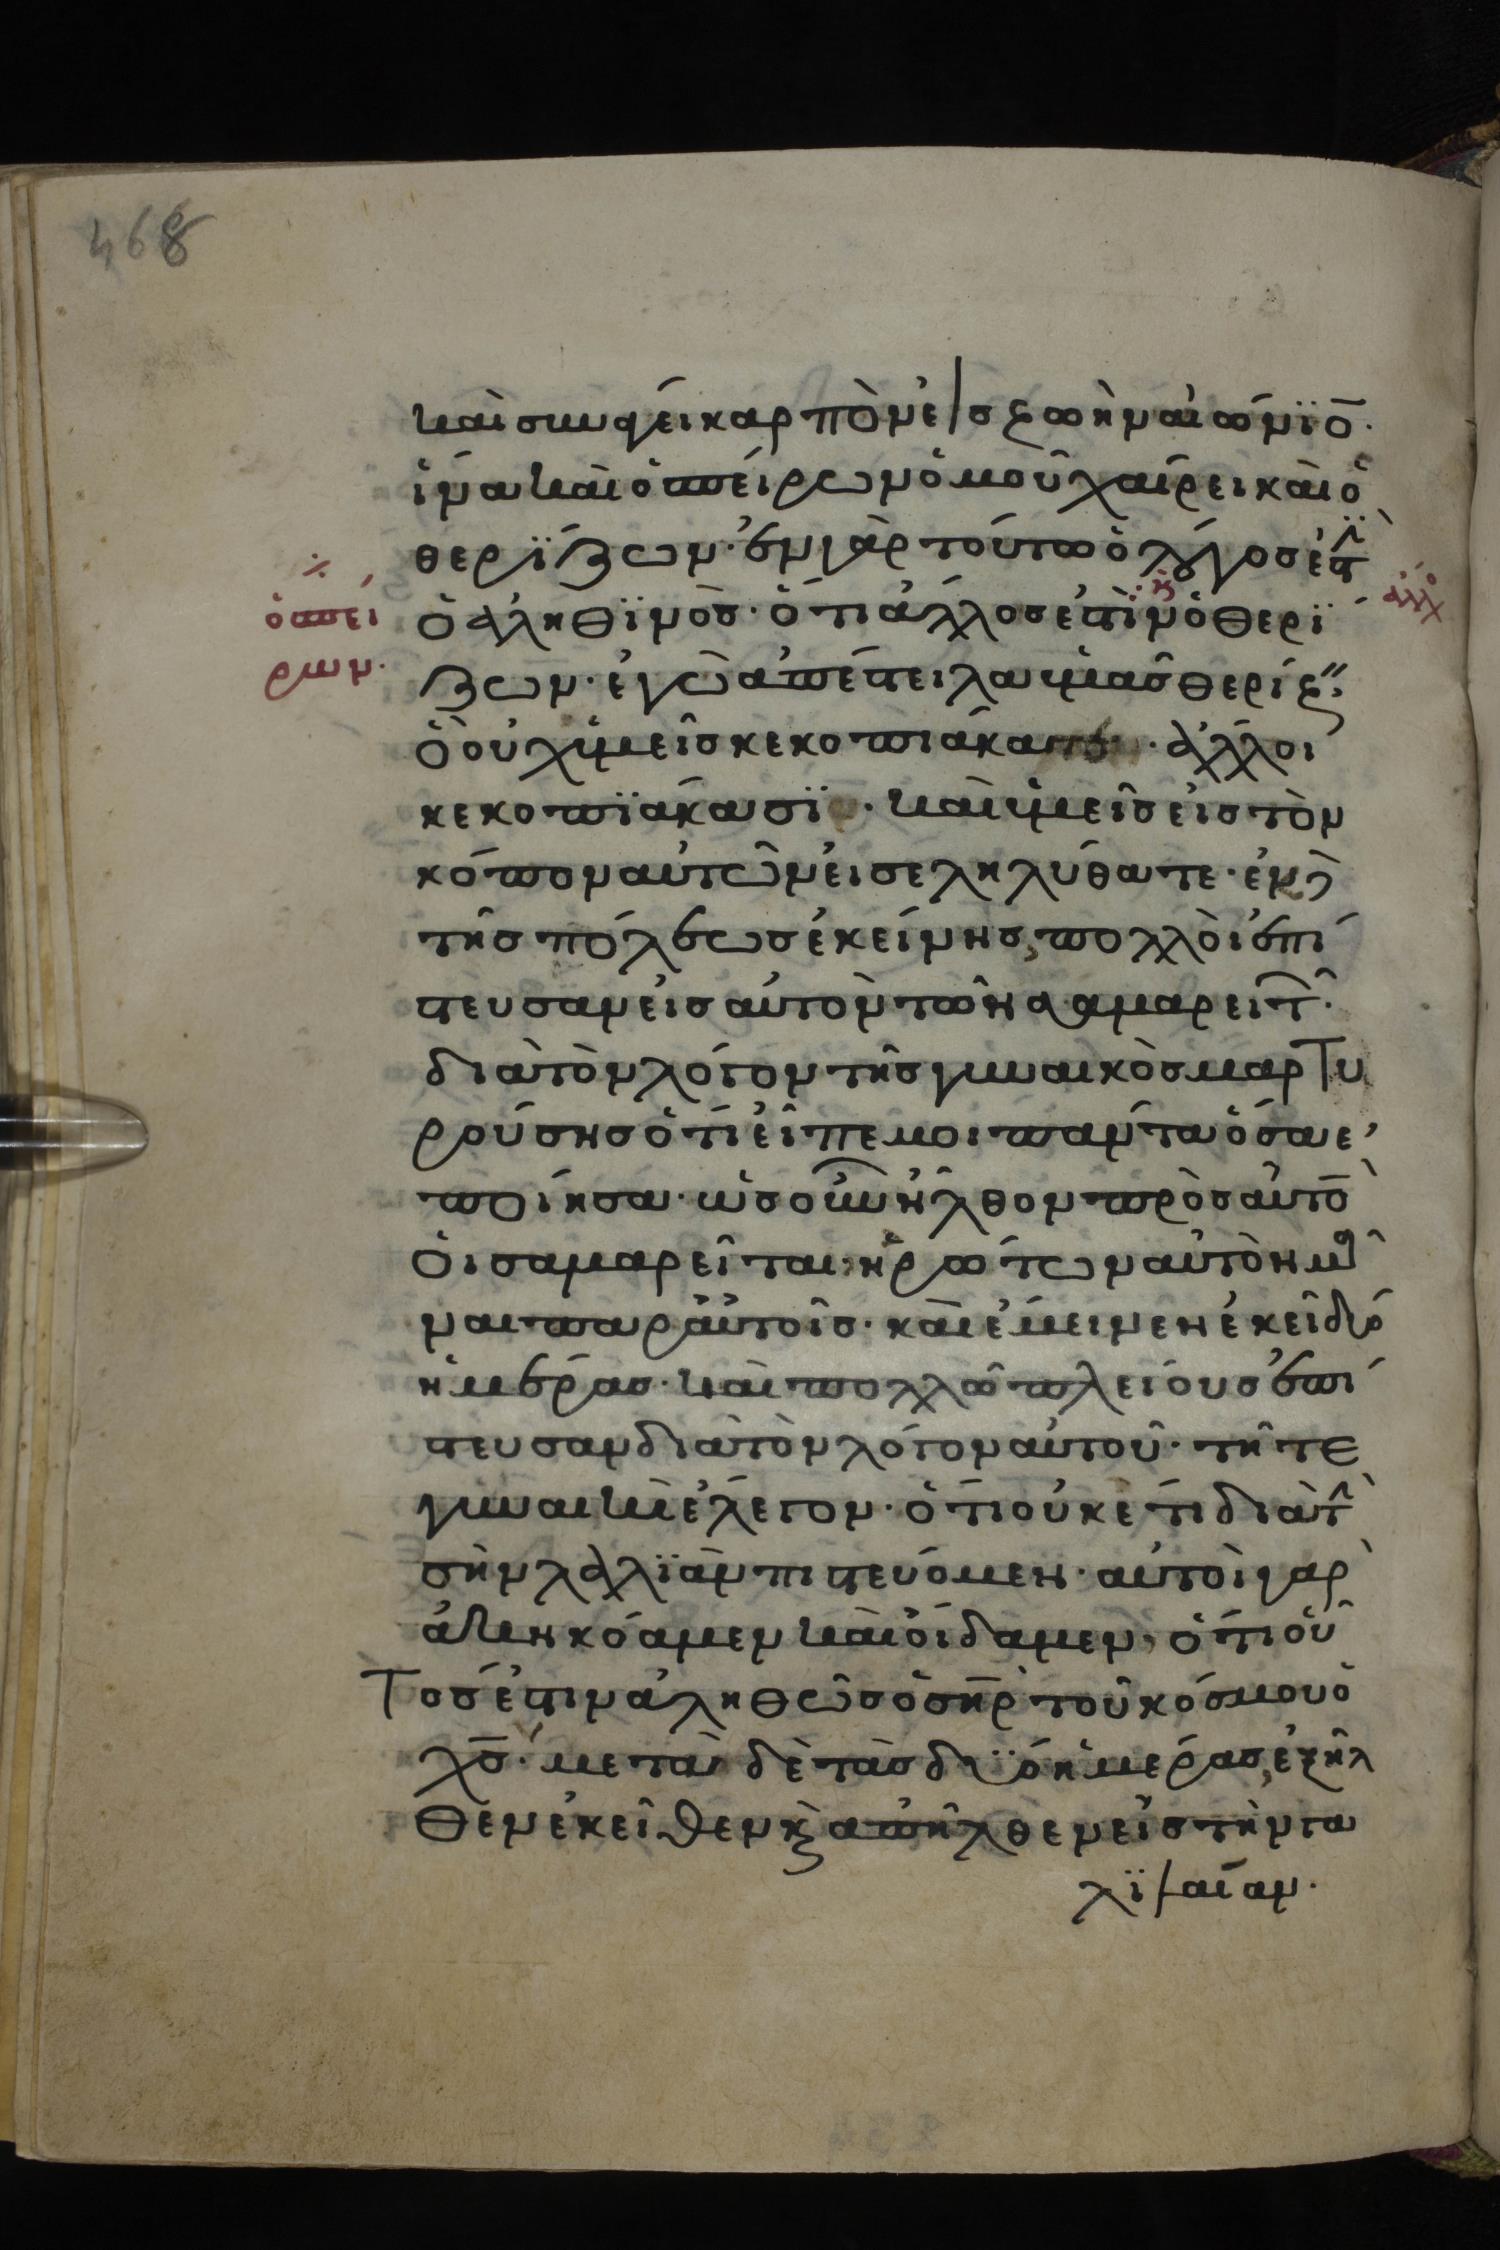 468
καὶ συνάγει καρπὸν εἰς ζωὴν αἰώνϊο̅ν·
ἵνα καὶ ὁ σπείρων ὁμοῦ χαίρει καὶ ὁ
θερΐζων· ἐν γὰρ τούτω ὁ λόγος ἐστὶ̈ν
ὁ ἀληθϊνὸς· ὅτι ἄλλος ἐστὶν ὁ θερΐ
ζων· ἐγὼ ἀπέστειλα ὑμᾶς θερίζειν
ὃ οὐχ ὑμεῖς κεκοπιάκατε· ἄλλοι
κεκοπϊάκασϊ· καὶ ὑμεῖς εἰς τὸν
κόπον αὐτῶν εἰσεληλύθατε· ἐκ δὲ
τῆς πόλεως ἐκείνης, πολλοὶ ἐπί
στευσαν εἰς αὐτὸν τῶν σαμαρειτῶν·
διὰ τὸν λόγον τῆς γυναικὸς μαρτυ
ρούσης ὅτι εἶπε μοι πάντα ὅσα ἐ
ποίησα· ὡς οὖν ἦλθον πρὸς αὐτὸ̅ν
οἱ σαμαρεῖται, ἠρώτων αὐτὸν μεῖ
ναι παρ' αὐτοῖς· καὶ ἔμεινεν ἐκεῖ δύο
ἡμέρας· καὶ πολλῶ πλείους ἐπί
στευσαν διὰ τὸν λόγον αὐτοῦ· τῆ τε
γυναικὶ ἔλεγον· ὅτι οὐκέτι διὰ τὴν
σὴν λαλϊὰν πιστεύομεν· αὐτοὶ γὰρ
ἀκηκόαμεν καὶ οἴδαμεν, ὅτι οὗ
τος ἐστιν ἀληθῶς ὁ ση̅ρ τοῦ κόσμου ὁ
χς̅· μετὰ δὲ τὰς δύο ἡμέρας, ἐξῆλ
θεν ἐκεῖθεν καὶ ἀπῆλθεν εἰς τὴν γα
λϊλαίαν·
ὁ σπεί
ρων·